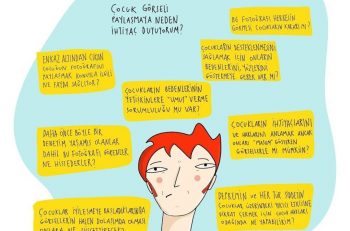 ÇOCUK GÖRSELİ
PAYLAŞMAYA NEDEN
İHTİYAÇ DUYUYORUM?
BU FOTOĞRAFI HERKESİN
GÖRMESİ ÇOCUKLARIN YARARINA?
ENKAZ ALTINDAN ÇIKAN
ÇOCUĞUN FOTOĞRAFINI
PAYLAŞMAK KONUYLA İLGİLİ
NE FAYDA SAĞLIYOR?
ÇOCUKLARIN DESTEKLENMESİNİ
SAĞLAMAK İÇİN ONLARIN
BEDENLERİNİ, YÜZLERİNİ
GÖSTERMEYE GEREK VAR MI?
ÇOCUKLARIN BEDENLERİNİN
YETİŞKİNLERE "UMUT" VERME
SORUMLULUĞU MU VAR?
DAHA ÖNCE BÖYLE BİR
DENEYİM YAŞAMIŞ OLANLAR
DAHİL BU FOTOĞRAFI GÖRENLER
NE HİSSEDERLER?
ÇOCUKLARIN İHTİYAÇLARINI
VE HAKLARINI ANLAMAK ANCAK
ONLARI "MASUM" GÖSTEREN
GÖRSELLERLE Mİ MÜMKÜN?
ÇOCUKLAR İYİLEŞMEYE BAŞLADIKLARINDA
GÖRSELLERİN HALEN DOLAŞIMDA OLMASI
ONLARA NE
DEPREMİN VE HER TÜR ŞİDDETİN
ÇOCUKLAR ÜZERİNDEKİ YIKICI ETKİSİNE
DİKKAT ÇEKMEK İÇİN ÇOCUK HAKLARI
ODAĞINDA NE YAPABİLİRİM?